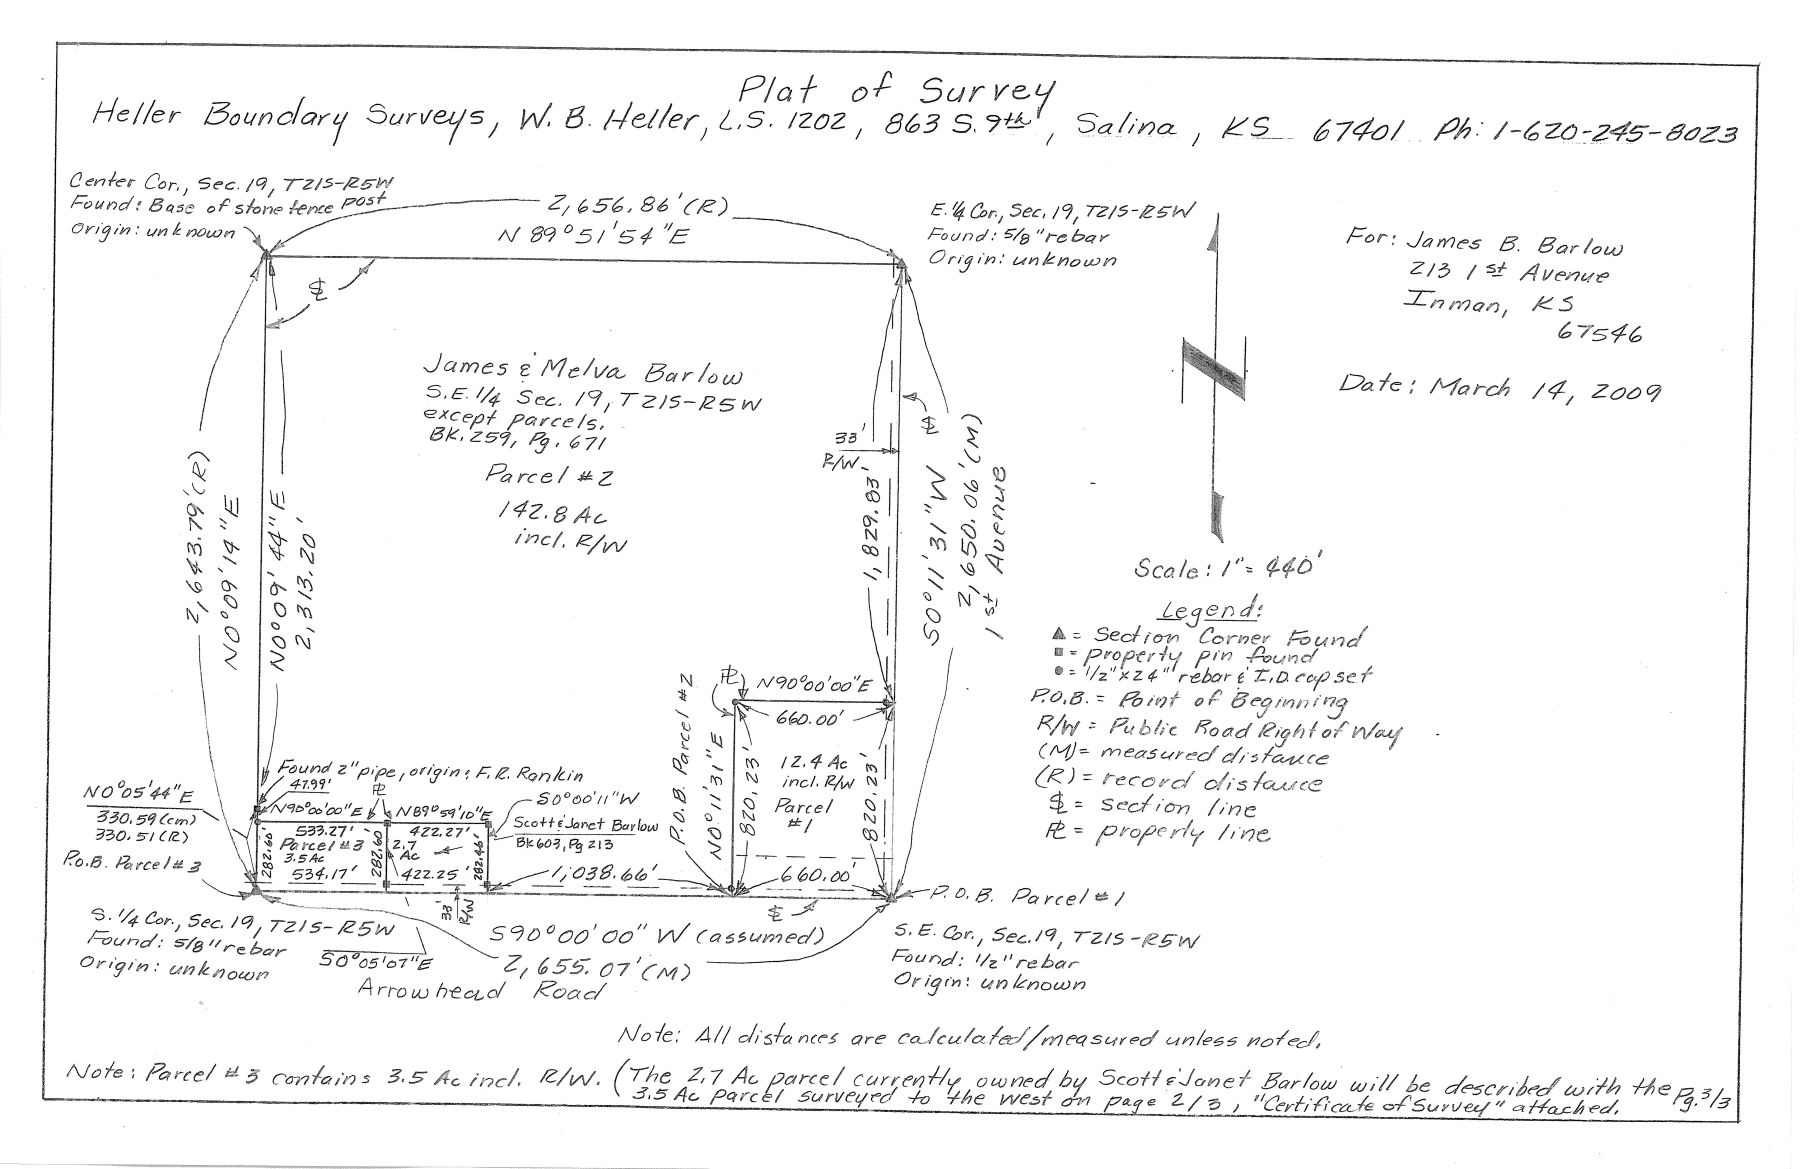 Plat of Survey
Heller Boundary Surveys, W. B. Heller, L.S. 1202, 863 S. 9th, Salina, KS 67401 Ph: 1-620-245-8023
Center Cor., Sec. 19, T21S-R5W
Found: Base of stone fence post
Origin: unknown
2,656.86'(R)
N 89°51'54"E
E. 1/4 Cor., Sec. 19, T21S-R5W
Found: 5/8" rebar
Origin: unknown
For: James B. Barlow
213 1st Avenue
Inman, KS
67546
Date: March 14, 2009
James & Melva Barlow
S.E. 1/4 Sec. 19, T21S-R5W
except parcels.
BK. 259, Pg. 671
Parcel #2
142.8 Ac
incl. R/W
33'
R/W
2,643.79'(R)
N0°09'14"E
N0°09'44"E
2,313.20'
1,829.83'
S0°11'31"W
2,650.06'(M)
1st Avenue
Scale: 1"= 440'
Legend:
▲ = Section Corner Found
■ = property pin found
● = 1/2"x24" rebar & I.D. cap set
P.O.B. = Point of Beginning
R/W = Public Road Right of Way
(M) = measured distance
(R) = record distance
℄ = section line
PL = property line
PL
N90°00'00"E
660.00'
P.O.B. Parcel #2
N0°11'31"E
820.23'
12.4 Ac
incl. R/W
Parcel
#1
820.23'
660.00'
Found 2" pipe, origin: F.R. Rankin
47.99'
PL
N0°05'44"E
330.59(cm)
330.51(R)
P.O.B. Parcel #3
N90°00'00"E
N89°59'10"E
S0°00'11"W
533.27'
422.27'
Scott & Janet Barlow
BK 603, Pg 213
282.60'
Parcel #3
3.5 Ac
282.60
2.7
Ac
282.46'
534.17'
422.25'
1,038.66'
33'
R/W
P.O.B. Parcel #1
S. 1/4 Cor., Sec. 19, T21S-R5W
Found: 5/8" rebar
Origin: unknown
S0°05'07"E
S90°00'00" W (assumed)
2,655.07'(M)
Arrowhead Road
S.E. Cor., Sec. 19, T21S-R5W
Found: 1/2" rebar
Origin: unknown
Note: All distances are calculated/measured unless noted.
Note: Parcel #3 contains 3.5 Ac incl. R/W. (The 2.7 Ac parcel currently owned by Scott & Janet Barlow will be described with the
3.5 Ac parcel surveyed to the west on page 2/3, "Certificate of Survey" attached.
Pg. 3/3